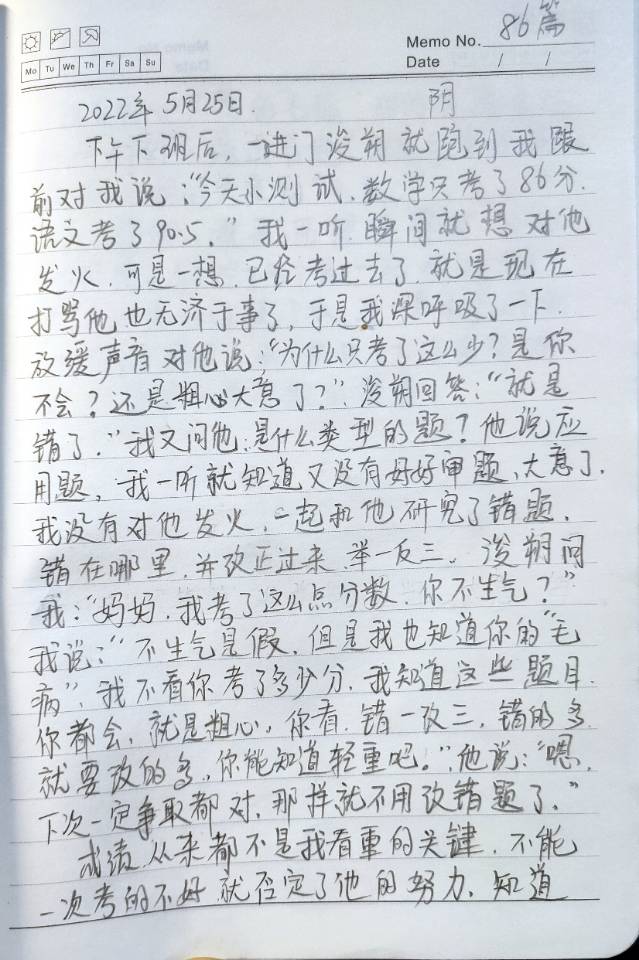 86篇
Memo No.
Date / /
Mo Tu We Th Fr Sa Su
2022年5月25日. 阴
下午下班后,一进门浚朔就跑到我跟
前对我说:“今天小测试,数学只考了86分.
语文考了90.5.”我一听瞬间就想对他
发火,可是一想,已经考过去了,就是现在
打骂他也无济于事了,于是我深呼吸了一下.
放缓声音对他说:“为什么只考了这么少?是你
不会?还是粗心大意了?”浚朔回答:“就是
错了.”我又问他:是什么类型的题?他说应
用题,我一听就知道又没有好好审题、大意了.
我没有对他发火,一起和他研究了错题.
错在哪里,并改正过来,举一反三。浚朔问
我:“妈妈,我考了这么点分数,你不生气?”
我说:“不生气是假,但是我也知道你的“毛
病”,我不看你考了多少分,我知道这些题目.
你都会,就是粗心,你看,错一改三,错的多
就要改的多,你能知道轻重吧。”他说:“嗯,
下次一定争取都对,那样就不用改错题了.”
成绩从来都不是我看重的关键,不能
一次考的不好就否定了他的努力,知道